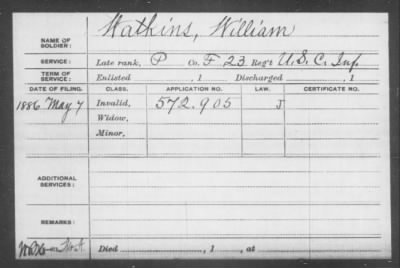 NAME OF SOLDIER: Watkins, William
SERVICE: Late rank, P Co. F 23 Reg't U.S.C. Inf.
TERM OF SERVICE: Enlisted , 1 Discharged , 1
DATE OF FILING. CLASS. APPLICATION NO. LAW. CERTIFICATE NO.
1886 May 7 Invalid, 572.905 J
Widow,
Minor,
ADDITIONAL SERVICES:
REMARKS:
Died , 1 , at